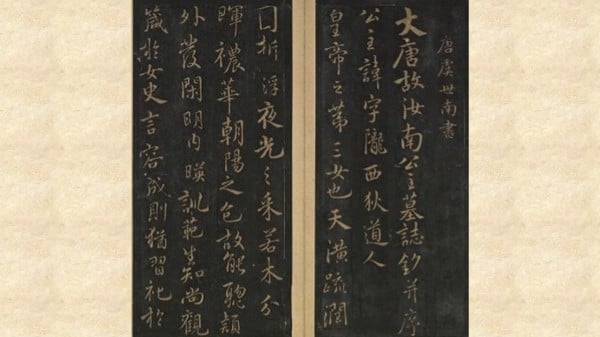 唐虞世南書
大唐故汝南公主墓誌銘并序
公主諱字隴西狄道人
皇帝之第三女也天潢疏潤
圓折浮夜光之采若木分
暉穠華朝陽之色故能聰穎
外發閑明內暎訓範生知尚觀
箴於女史言容成則猶習礼於